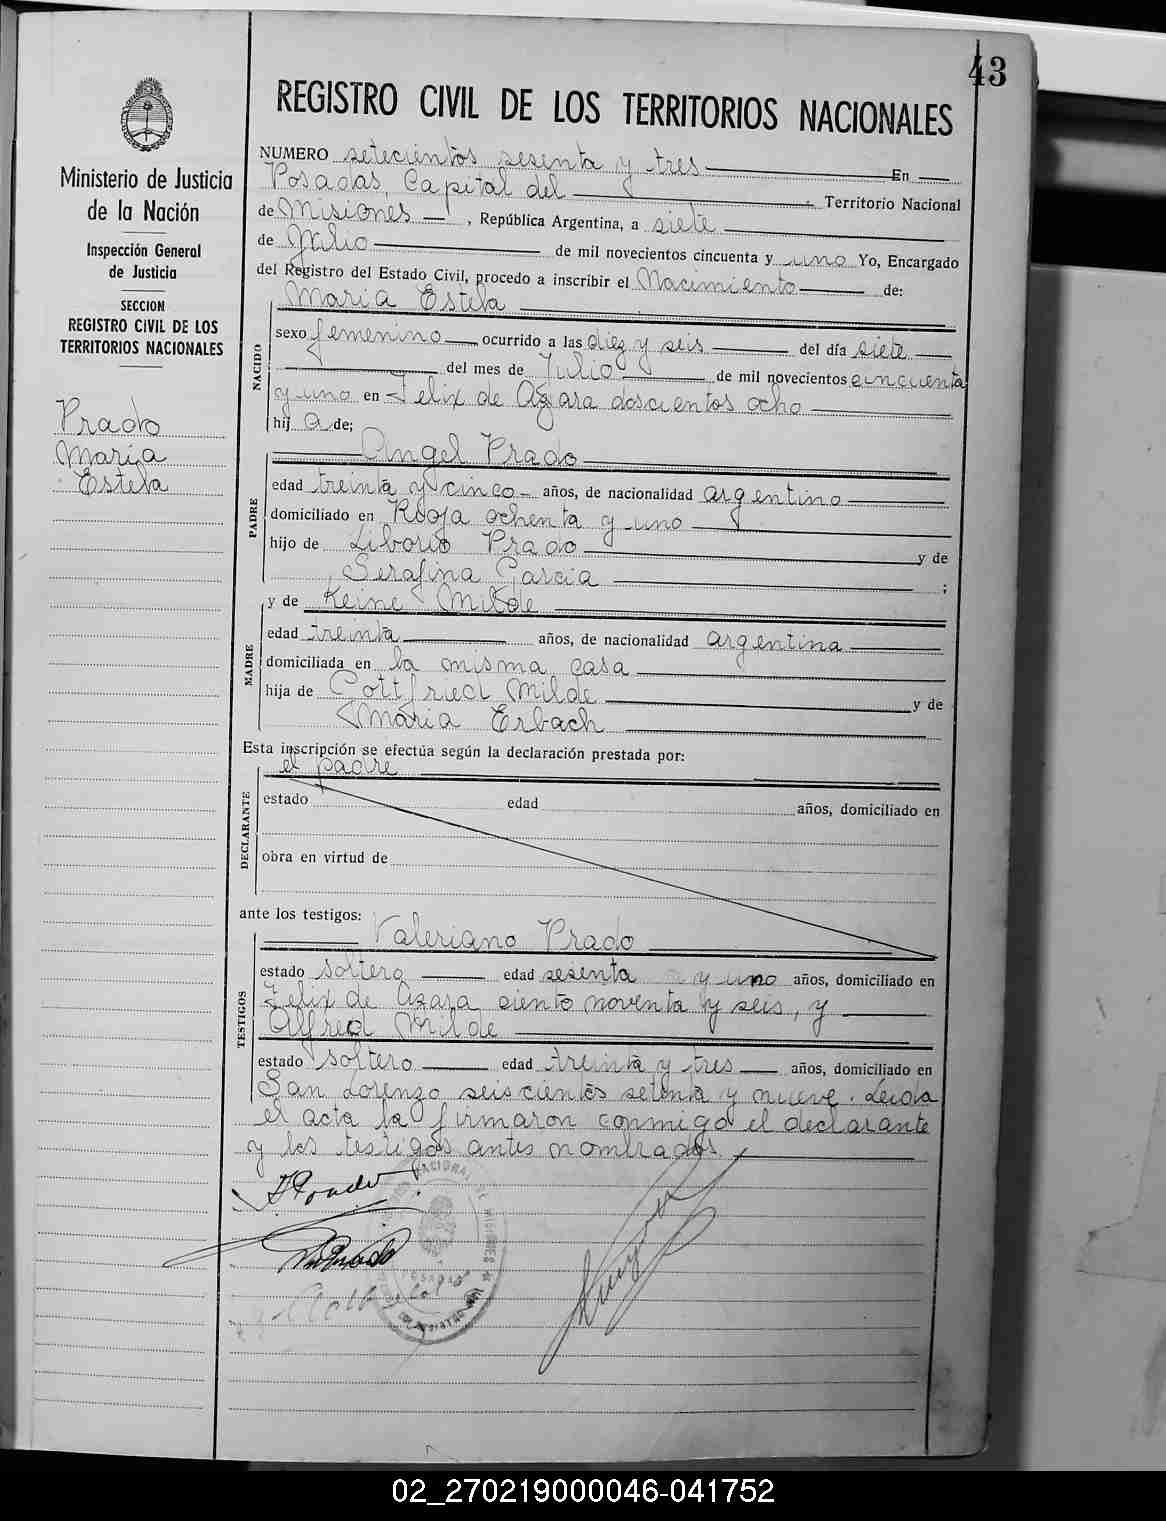 43
REGISTRO CIVIL DE LOS TERRITORIOS NACIONALES
Ministerio de Justicia
de la Nación
Inspección General
de Justicia
SECCION
REGISTRO CIVIL DE LOS
TERRITORIOS NACIONALES
Prado
Maria
Estela
NUMERO setecientos sesenta y tres En
Posadas, Capital del Territorio Nacional
de Misiones, República Argentina, a siete
de Julio de mil novecientos cincuenta y uno Yo, Encargado
del Registro del Estado Civil, procedo a inscribir el Nacimiento de:
Maria Estela
NACIDO
sexo femenino ocurrido a las diez y seis del día siete
del mes de Julio de mil novecientos cincuenta
y uno en Felix de Azara doscientos ocho
hij a de;
Angel Prado
PADRE
edad treinta y cinco años, de nacionalidad argentino
domiciliado en Rioja ochenta y uno
hijo de Liborio Prado y de
Serafina Garcia ;
y de Keine Milde
MADRE
edad treinta años, de nacionalidad argentina
domiciliada en la misma casa
hija de Gottfried Milde y de
Maria Erbach
Esta inscripción se efectúa según la declaración prestada por:
el padre
DECLARANTE
estado edad años, domiciliado en
obra en virtud de
ante los testigos:
Valeriano Prado
TESTIGOS
estado soltero edad sesenta y uno años, domiciliado en
Felix de Azara ciento noventa y seis, y
Alfred Milde
estado soltero edad treinta y tres años, domiciliado en
San Lorenzo seiscientos setenta y nueve. Leida
el acta la firmaron conmigo el declarante
y los testigos antes nombrados.
02_270219000046-041752